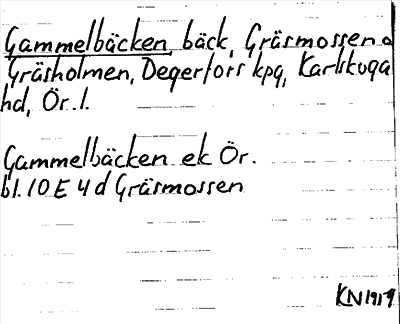 Gammelbäcken, bäck, Gräsmossen o
Gräsholmen, Degerfors kpg, Karlskoga
hd, Ör. l.
Gammelbäcken ek Ör.
bl. 10 E 4 d Gräsmossen